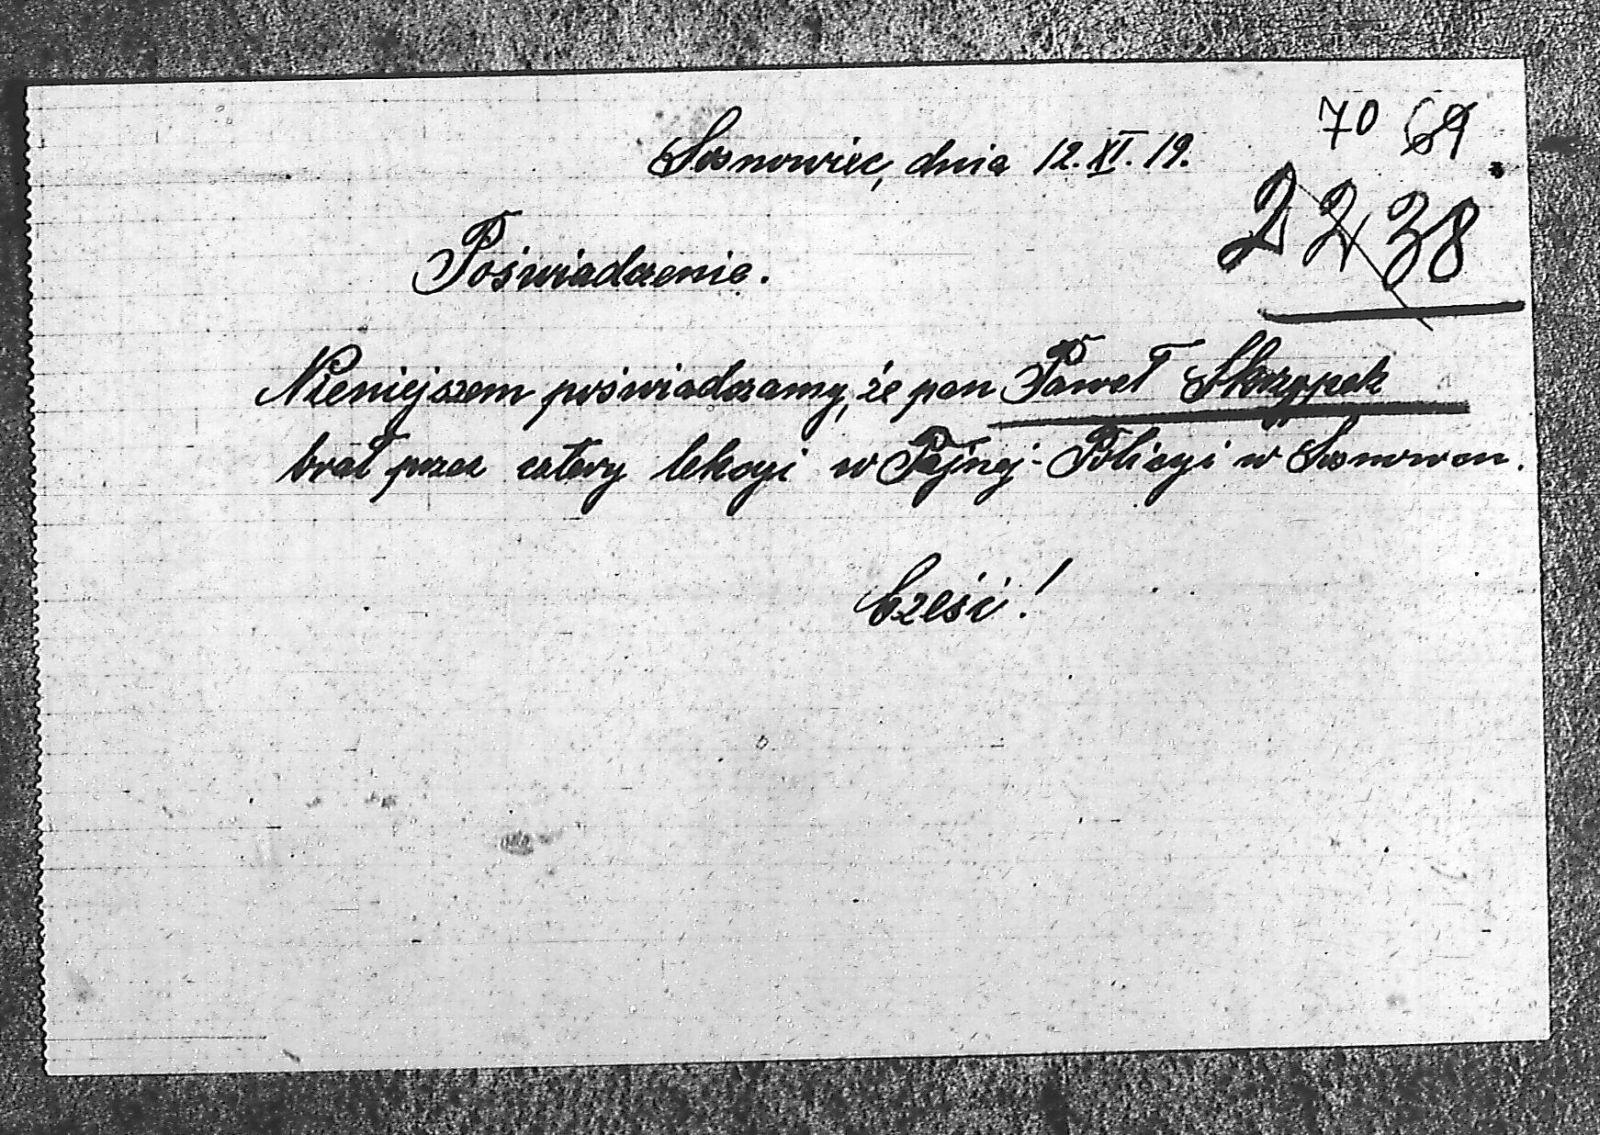 70 69
Sosnowiec, dnia 12. XI. 19.
2238
Poświadczenie.
Nieniejszem poświadczamy, że pan Paweł Skrzypek
brał przez cztery lekcyi w Tajnej-Policyi w Sosnowcu.
Cześć!